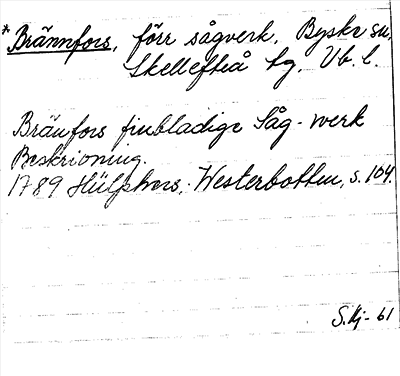 *Brännfors, förr sågverk, Byske sn,
Skellefteå tg, Vb. l.
Bränfors finbladige Såg-werk
Beskrivning.
1789 Hülphers, Westerbotten, s. 104.
S.Hj-61